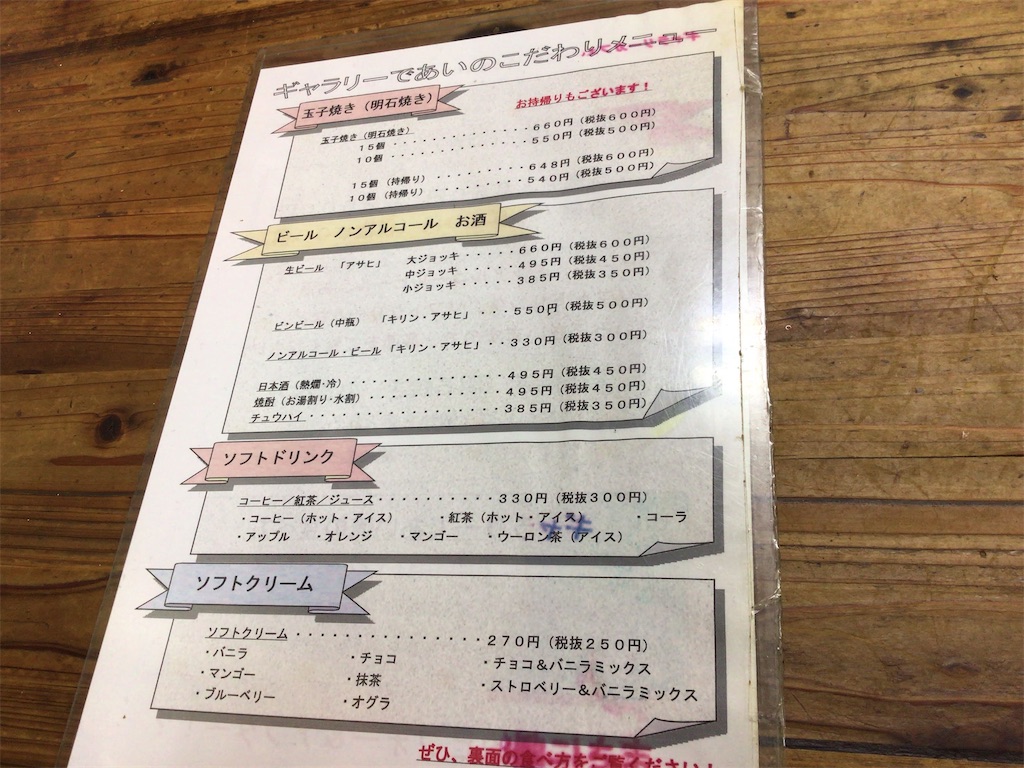 ギャラリーであいのこだわりメニュー
玉子焼き（明石焼き）
お持帰りもございます！
玉子焼き（明石焼き）
15個・・・・・・・・・・・・660円（税抜600円）
10個・・・・・・・・・・・・550円（税抜500円）
15個（持帰り）・・・・・・・・648円（税抜600円）
10個（持帰り）・・・・・・・・540円（税抜500円）
ビール　ノンアルコール　お酒
生ビール　「アサヒ」　大ジョッキ・・・・・660円（税抜600円）
中ジョッキ・・・・・495円（税抜450円）
小ジョッキ・・・・・385円（税抜350円）
ビンビール（中瓶）　「キリン・アサヒ」・・・550円（税抜500円）
ノンアルコール・ビール「キリン・アサヒ」・・330円（税抜300円）
日本酒（熱爛・冷）・・・・・・・・・・・・・・495円（税抜450円）
焼酎（お湯割り・水割）・・・・・・・・・・・・495円（税抜450円）
チュウハイ・・・・・・・・・・・・・・・・・385円（税抜350円）
ソフトドリンク
コーヒー／紅茶／ジュース・・・・・・・・・・330円（税抜300円）
・コーヒー（ホット・アイス）　・紅茶（ホット・アイス）　・コーラ
・アップル　・オレンジ　・マンゴー　・ウーロン茶（アイス）
ソフトクリーム
ソフトクリーム・・・・・・・・・・・・・・・・270円（税抜250円）
・バニラ　・チョコ　・チョコ＆バニラミックス
・マンゴー　・抹茶　・ストロベリー＆バニラミックス
・ブルーベリー　・オグラ
ぜひ、裏面の食べ方をご覧ください！